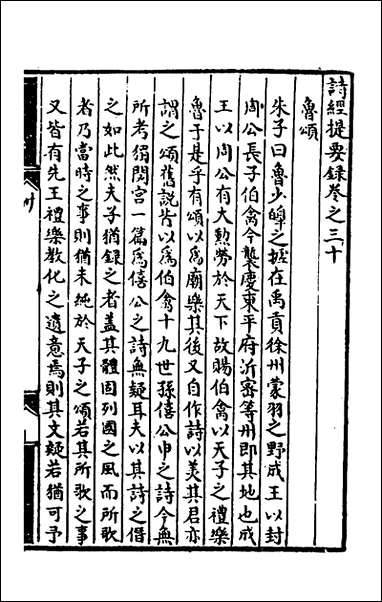 詩經提要錄卷之三十
魯頌
朱子曰魯少皡之墟在禹貢徐州蒙羽之野成王以封
周公長子伯禽今襲慶東平府沂密等州即其地也成
王以周公有大勲勞於天下故賜伯禽以天子之禮樂
魯于是乎有頌以爲廟樂其後又自作詩以美其君亦
謂之頌舊説皆以爲伯禽十九世孫僖公申之詩今無
所考獨閟宫一篇爲僖公之詩無疑耳夫以其詩之僭
之如此然夫子猶錄之者蓋其體固列國之風而所歌
者乃當時之事則猶未純於天子之頌若其所歌之事
又皆有先王禮樂教化之遺意焉則其文疑若猶可予
卅